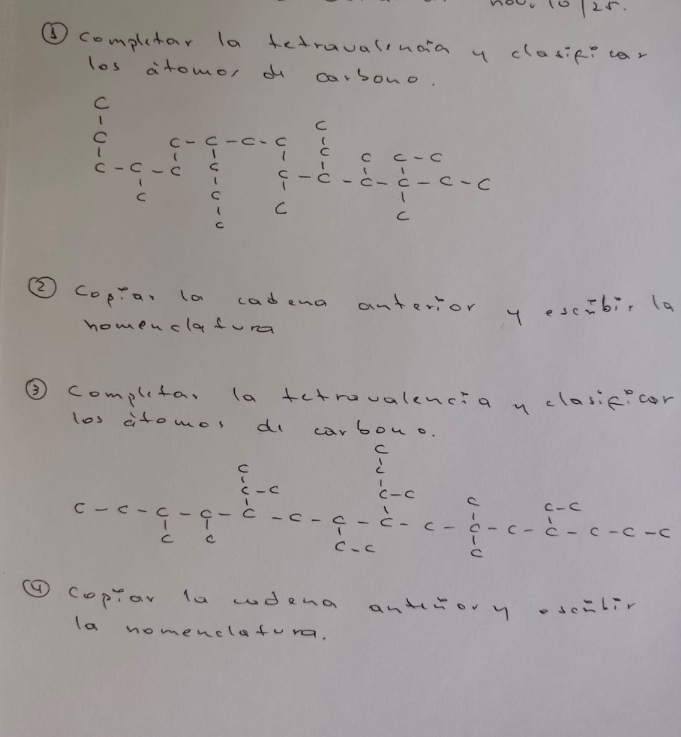 nov. 10/25.
① Completar la tetravalencia y clasificar
los átomos de carbono.
C
C C
C C - C - C - C C C C - C
C - C - C C C - C - C - C - C - C
C C C C
C
② Copiar la cadena anterior y escribir la
nomenclatura
③ Completar la tetravalencia y clasificar
los átomos de carbono.
C
C C
C - C C - C C C - C
C - C - C - C - C - C - C - C - C - C - C - C - C - C - C
C C C - C C
④ Copiar la cadena anterior y escribir
la nomenclatura.